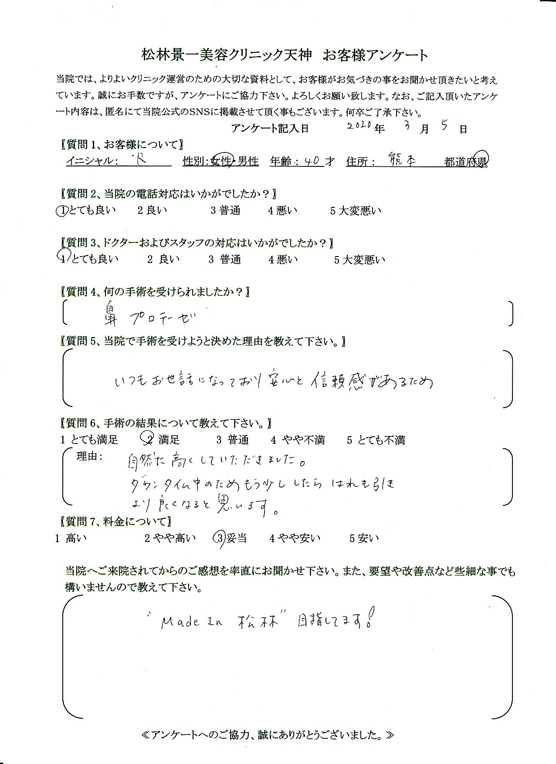 松林景一美容クリニック天神　お客様アンケート
当院では、よりよいクリニック運営のための大切な資料として、お客様がお気づきの事をお聞かせ頂きたいと考え
ています。誠にお手数ですが、アンケートにご協力下さい。よろしくお願い致します。なお、ご記入頂いたアンケ
ート内容は、匿名にて当院公式のSNSに掲載させて頂く事もございます。何卒ご了承下さい。
アンケート記入日　2020年　3月　5日
【質問1、お客様について】
イニシャル：　R　性別：女性・男性　年齢：40才　住所：　熊本　都道府県
【質問2、当院の電話対応はいかがでしたか？】
1とても良い　2良い　3普通　4悪い　5大変悪い
【質問3、ドクターおよびスタッフの対応はいかがでしたか？】
1とても良い　2 良い　3 普通　4悪い　5大変悪い
【質問4、何の手術を受けられましたか？】
鼻 プロテーゼ
【質問5、当院で手術を受けようと決めた理由を教えて下さい。】
いつもお世話になっており安心と信頼感があるため
【質問6、手術の結果について教えて下さい。】
1 とても満足　2 満足　3 普通　4 やや不満　5 とても不満
理由：　自然に高くしていただきました。
ダウンタイム中のためもう少ししたら はれも引き
より良くなると思います。
【質問7、料金について】
1 高い　2 やや高い　3妥当　4 やや安い　5 安い
当院へご来院されてからのご感想を率直にお聞かせ下さい。また、要望や改善点など些細な事でも
構いませんので教えて下さい。
"Made In 松林" 目指してます!
≪アンケートへのご協力、誠にありがとうございました。≫